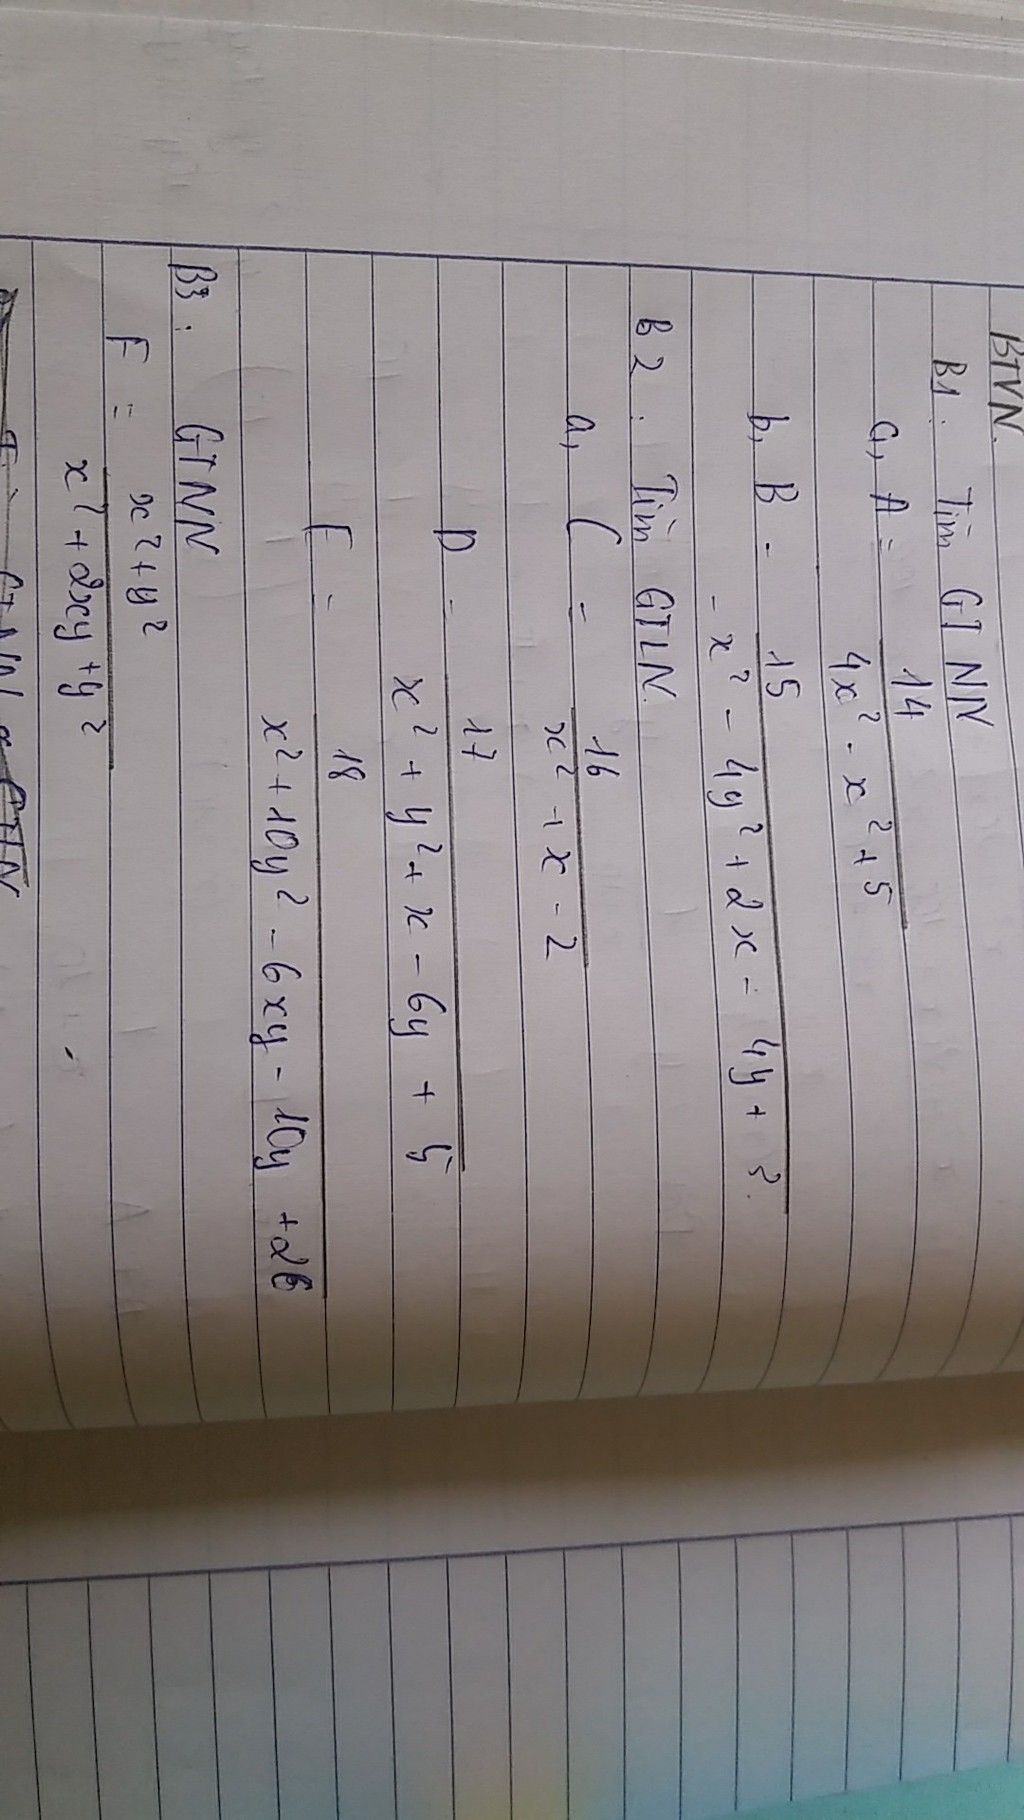 BTVN.
B1. Tìm GTNN
a, A = 14
4x² - x² + 5
b, B = 15
- x² - 4y² + 2x - 4y + 3.
B2. Tìm GTLN
a, C = 16
x² + x - 2
D = 17
x² + y² + x - 6y + 5
E = 18
x² + 10y² - 6xy - 10y + 26
B3: GTNN
F = x² + y²
x² + 2xy + y²